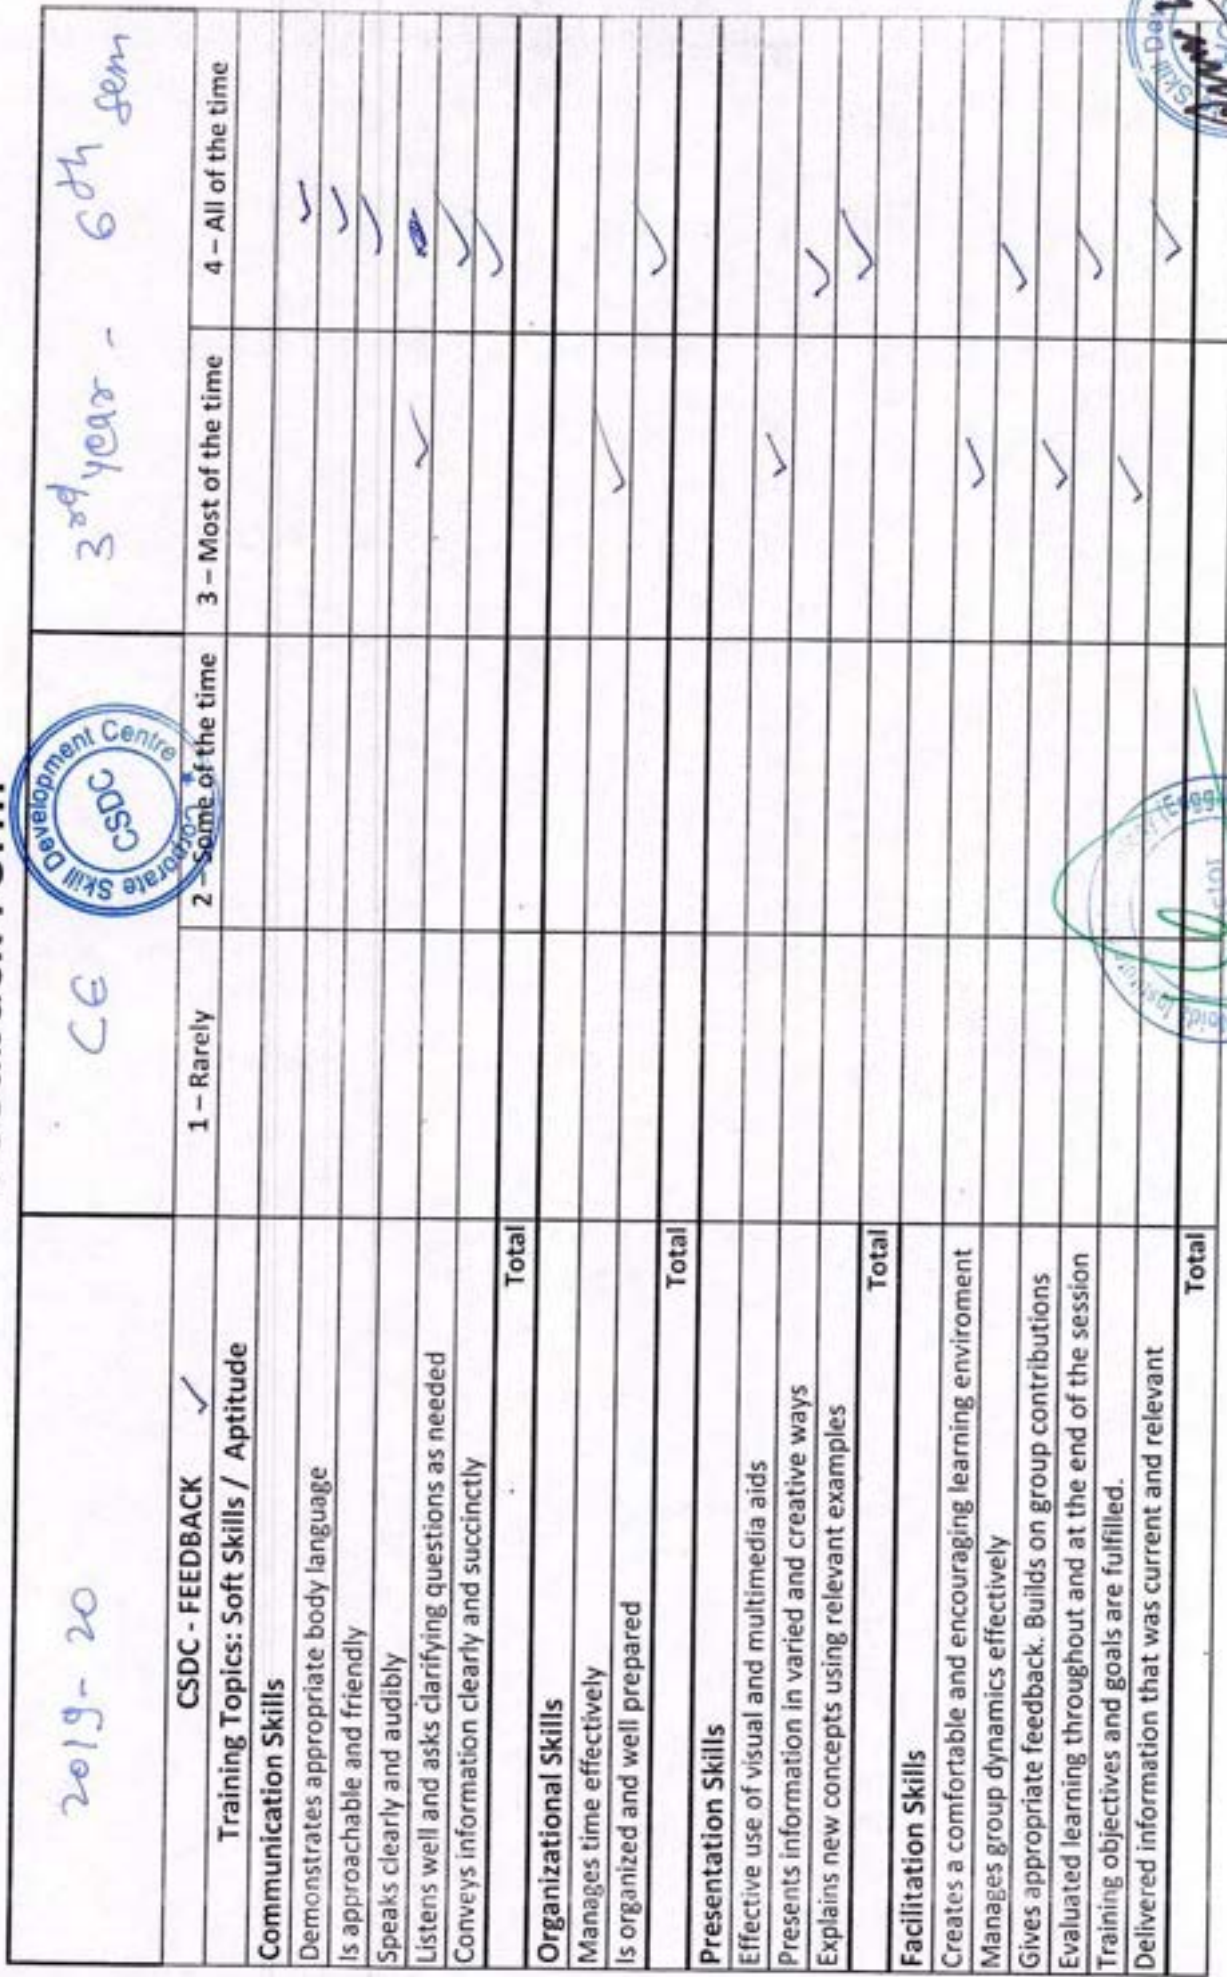 2019-20 CE 3rd year - 6th sem
Corporate Skill Development Centre *
CSDC
CSDC - FEEDBACK ✓ 1 – Rarely 2 – Some of the time 3 – Most of the time 4 – All of the time
Training Topics: Soft Skills / Aptitude
Communication Skills
Demonstrates appropriate body language ✓
Is approachable and friendly ✓
Speaks clearly and audibly ✓
Listens well and asks clarifying questions as needed ✓
Conveys information clearly and succinctly ✓
✓
Total
Organizational Skills
Manages time effectively ✓
Is organized and well prepared ✓
Total
Presentation Skills
Effective use of visual and multimedia aids ✓
Presents information in varied and creative ways ✓
Explains new concepts using relevant examples ✓
Total
Facilitation Skills
Creates a comfortable and encouraging learning enviroment ✓
Manages group dynamics effectively ✓
Gives appropriate feedback. Builds on group contributions ✓
Evaluated learning throughout and at the end of the session ✓
Training objectives and goals are fulfilled. ✓
Delivered information that was current and relevant ✓
Total
Skill De